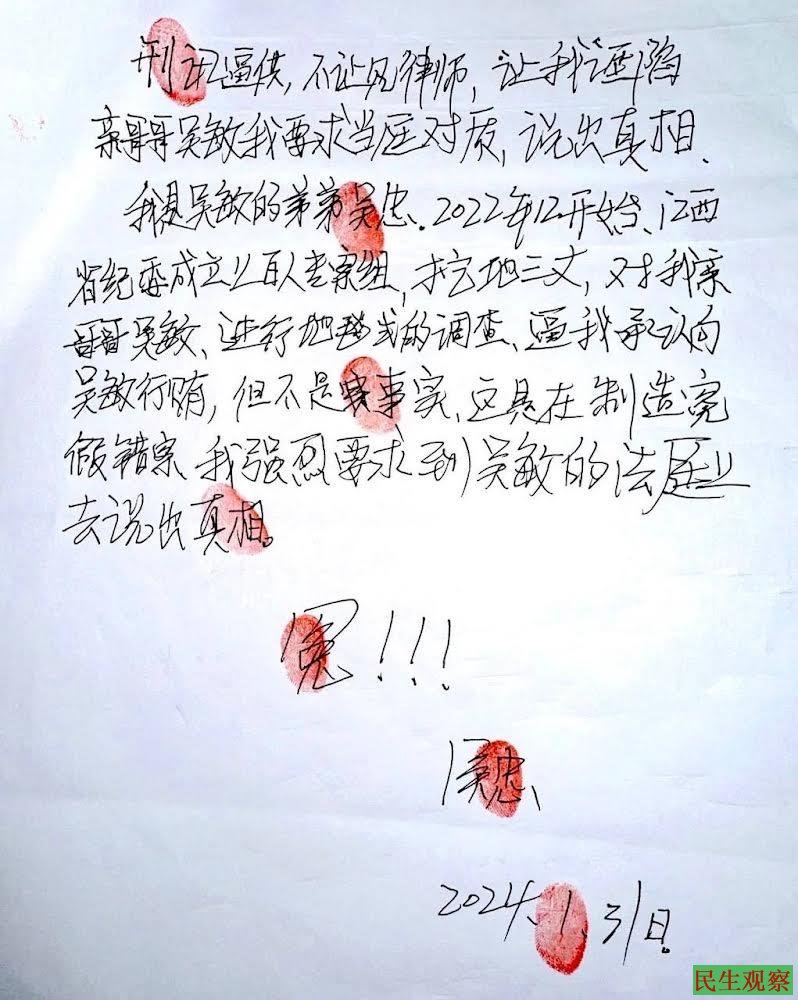 刑讯逼供，不让见律师，让我诬陷
亲哥哥吴敏我要求当庭对质，说出真相、
我是吴敏的弟弟吴忠．2022年12开始、江西
省纪委成立上百人专案组，挖地三丈，对我亲
哥哥吴敏、进行地毯式的调查、逼我承认向
吴敏行贿，但不是事实、这是在制造冤
假错案 我强烈要求到吴敏的法庭上
去说出真相。
冤！！！
吴忠、
2024.1.31日
民生观察